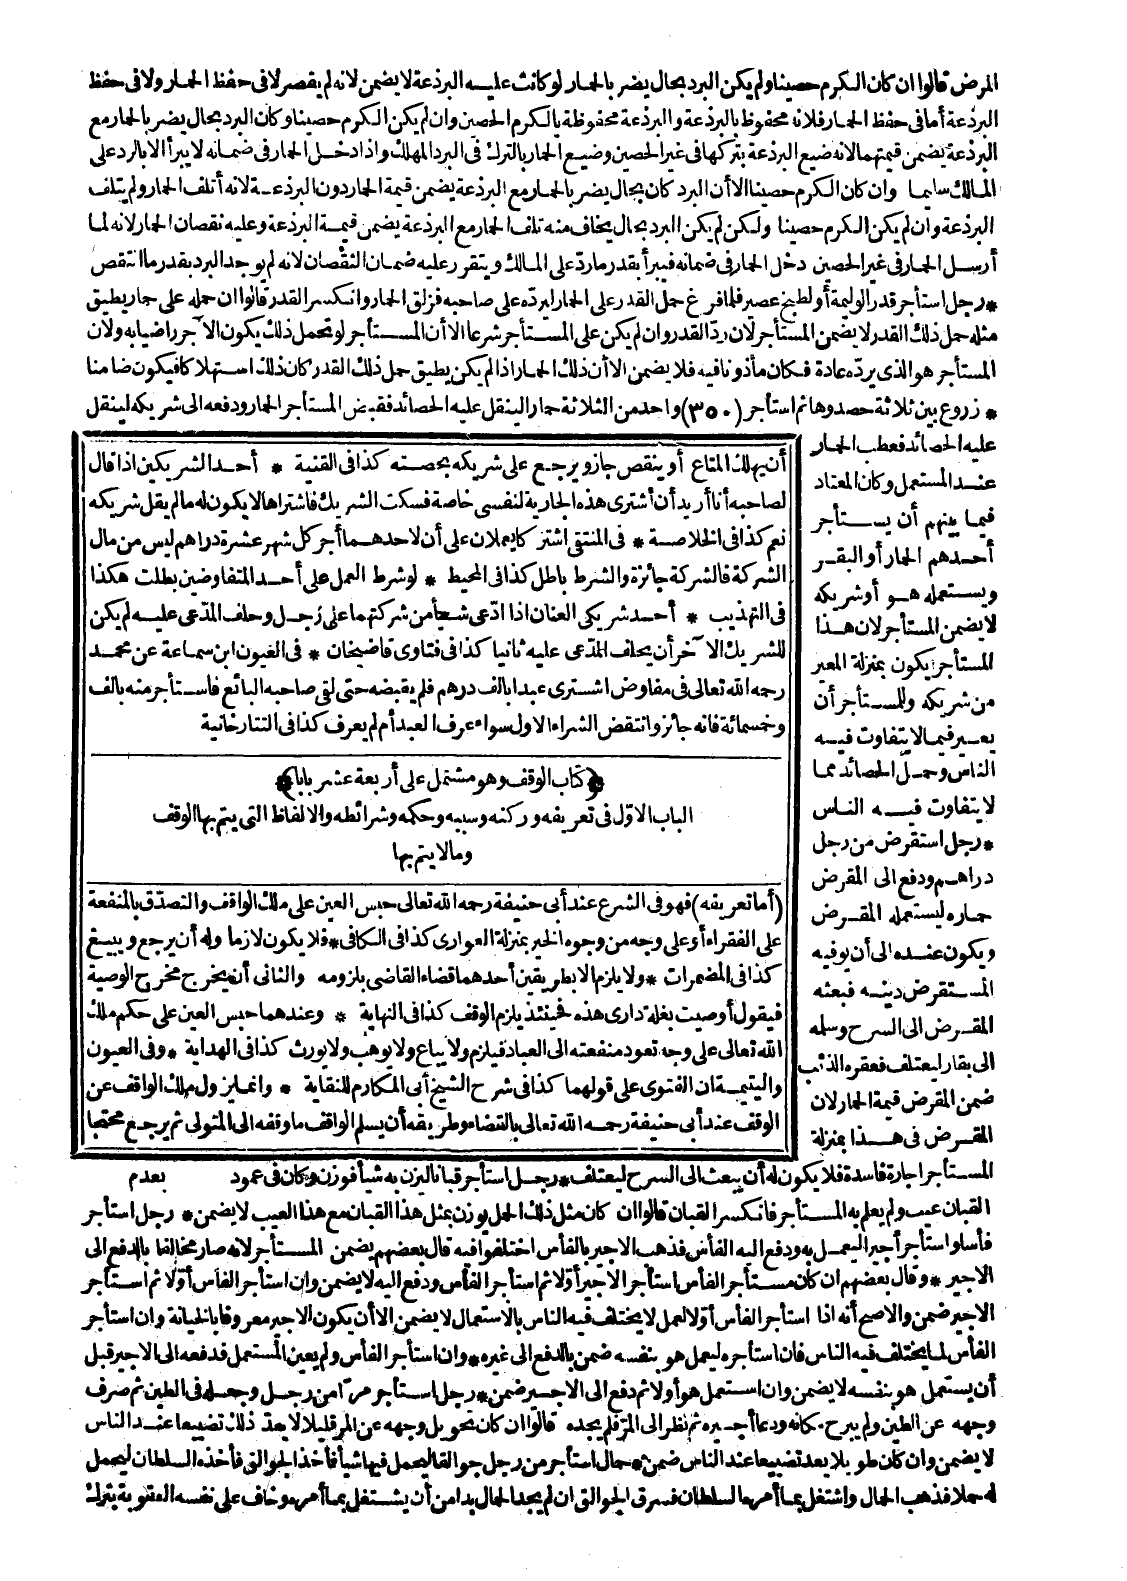 المرض قالوا ان كان الكرم حصينا ولم يكن البرد بحال يضر بالحمار لو كانت عليه البرذعة لا يضمن لانه لم يقصر لا في حفظ الحمار ولا في حفظ
البرذعة أما في حفظ الحمار فلانه محفوظ بالبرذعة والبرذعة محفوظة بالكرم الحصين وان لم يكن الكرم حصينا وكان البرد بحال يضر بالحمار مع
البرذعة يضمن قيمتهما لانه ضيع البرذعة بتركها في غير الحصين وضيع الحمار بالترك في البرد المهلك واذا دخل الحمار في ضمانه لا يبرأ الا بالرد على
المالك سليما وان كان الكرم حصينا الا أن البرد كان بحال يضر بالحمار مع البرذعة يضمن قيمة الحمار دون البرذعة لانه أتلف الحمار ولم يتلف
البرذعة وان لم يكن الكرم حصينا ولكن لم يكن البرد بحال يخاف منه تلف الحمار مع البرذعة يضمن قيمة البرذعة وعليه نقصان الحمار لانه لما
أرسل الحمار في غير الحصين دخل الحمار في ضمانه فيبرأ بقدر ما رد على المالك ويتقرر عليه ضمان النقصان لانه لم يوجد البرد بقدر ما انتقص
* رجل استأجر قدر الوليمة أو لطبخ عصير فلما فرغ حمل القدر على الحمار ليرده على صاحبه فزلق الحمار وانكسر القدر قالوا ان حمله على حمار يطيق
مثله حمل ذلك القدر لا يضمن المستأجر لان رد القدر وان لم يكن على المستأجر شرعا الا أن المستأجر لو تحمل ذلك يكون الآجر راضيا به ولان
المستأجر هو الذي يرده عادة فكان مأذونا فيه فلا يضمن الا أن ذلك الحمار اذا لم يكن يطيق حمل ذلك القدر كان ذلك استهلاكا فيكون ضامنا
* زروع بين ثلاثة حصدوها ثم استأجر (٣٥٠) واحد من الثلاثة حمارا لينقل عليه الحصائد فقبض المستأجر الحمار ودفعه الى شريكه لينقل
عليه الحصائد فعطب الحمار
عند المستعمل وكان المعتاد
فيما بينهم أن يستأجر
أحدهم الحمار أو البقر
ويستعمله هو أو شريكه
لا يضمن المستأجر لان هذا
المستأجر يكون بمنزلة المعير
من شريكه وللمستأجر أن
يعير فيما لا يتفاوت فيه
الناس وحمل الحصائد مما
لا يتفاوت فيه الناس
* رجل استقرض من رجل
دراهم ودفع الى المقرض
حماره ليستعمله المقرض
ويكون عنده الى أن يوفيه
المستقرض دينه فبعثه
المقرض الى السرح وسلمه
الى بقار ليعتلف فعقره الذئب
ضمن المقرض قيمة الحمار لان
المقرض في هذا بمنزلة
المستأجر اجارة فاسدة فلا يكون له أن يبعث الى السرح ليعتلف * رجل استأجر قبانا ليزن به شيأ فوزن وكان في عمود
القبان عيب ولم يعلم به المستأجر فانكسر القبان قالوا ان كان مثل ذلك الحمل يوزن بمثل هذا القبان مع هذا العيب لا يضمن * رجل استأجر
فأسا واستأجر أجيرا ليعمل به ودفع اليه الفأس فذهب الاجير بالفأس اختلفوا فيه قال بعضهم يضمن المستأجر لانه صار مخالفا بالدفع الى
الاجير * وقال بعضهم ان كان مستأجر الفأس استأجر الاجير أولا ثم استأجر الفأس ودفع اليه لا يضمن وان استأجر الفأس أولا ثم استأجر
الاجير ضمن والاصح أنه اذا استأجر الفأس أولا لعمل لا يختلف فيه الناس بالاستعمال لا يضمن الا أن يكون الاجير معروفا بالخيانة وان استأجر
الفأس لما يختلف فيه الناس فان استأجره ليعمل هو بنفسه ضمن بالدفع الى غيره * وان استأجر الفأس ولم يعين المستعمل فدفعه الى الاجير قبل
أن يستعمل هو بنفسه لا يضمن وان استعمل هو أولا ثم دفع الى الاجير ضمن * رجل استأجر مرا من رجل وجعله في الطين ثم صرف
وجهه عن الطين ولم يبرح مكانه ودعا أجيره ثم نظر الى المر فلم يجده قالوا ان كان تحويل وجهه عن المر قليلا لا يعد ذلك تضييعا عند الناس
لا يضمن وان كان طويلا يعد تضييعا عند الناس ضمن * حمال استأجر من رجل جوالقا ليحمل فيها شيأ فأخذ الجوالق فأخذه السلطان ليحمل
له حملا فذهب الحمال واشتغل بما أمره السلطان فسرق الجوالق ان لم يجد الحمال بدا من أن يشتغل بما أمره وخاف على نفسه العقوبة بترك
أن يهلك المتاع أو ينقص جاز ويرجع على شريكه بحصته كذا في القنية * أحد الشريكين اذا قال
لصاحبه أنا أريد أن أشترى هذه الجارية لنفسي خاصة فسكت الشريك فاشتراها لا يكون له ما لم يقل شريكه
نعم كذا في الخلاصة * في المنتقى اشتركا يعملان على أن لاحدهما أجر كل شهر عشرة دراهم ليس من مال
الشركة فالشركة جائزة والشرط باطل كذا في المحيط * لو شرط العمل على أحد المتفاوضين بطلت هكذا
في التهذيب * أحد شريكي العنان اذا ادعى شيأ من شركتهما على رجل وحلف المدعى عليه لم يكن
للشريك الآخر أن يحلف المدعى عليه ثانيا كذا في فتاوى قاضيخان * في العيون ابن سماعة عن محمد
رحمه الله تعالى في مفاوض اشترى عبدا بالف درهم فلم يقبضه حتى لقي صاحبه البائع فاستأجر منه بالف
وخمسمائة فانه جائز وانتقض الشراء الاول سواء عرف العبد أم لم يعرف كذا في التتارخانية
﴿كتاب الوقف وهو مشتمل على أربعة عشر بابا﴾
الباب الاول في تعريفه وركنه وسببه وحكمه وشرائطه والالفاظ التي يتم بها الوقف
وما لا يتم بها
(أما تعريفه) فهو في الشرع عند أبي حنيفة رحمه الله تعالى حبس العين على ملك الواقف والتصدق بالمنفعة
على الفقراء أو على وجه من وجوه الخير بمنزلة العواري كذا في الكافي * فلا يكون لازما وله أن يرجع ويبيع
كذا في المضمرات * ولا يلزم الا بطريقين أحدهما قضاء القاضي بلزومه والثاني أن يخرج مخرج الوصية
فيقول أوصيت بغلة داري هذه فحينئذ يلزم الوقف كذا في النهاية * وعندهما حبس العين على حكم ملك
الله تعالى على وجه تعود منفعته الى العباد فيلزم ولا يباع ولا يوهب ولا يورث كذا في الهداية * وفي العيون
واليتيمة ان الفتوى على قولهما كذا في شرح الشيخ أبي المكارم للنقاية * وانما يزول ملك الواقف عن
الوقف عند أبي حنيفة رحمه الله تعالى بالقضاء وطريقه أن يسلم الواقف ما وقفه الى المتولى ثم يرجع محتجا
بعدم